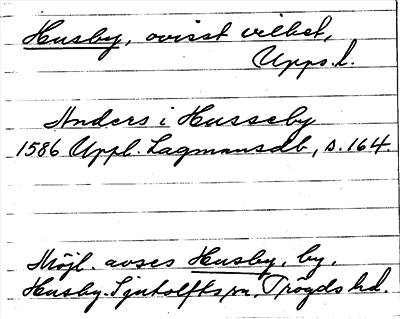 Husby, ovisst vilket,
Upps. l.
Anders i Husseby
1586 Uppl. Lagmansdb, s. 164.
Möjl. avses Husby, by,
Husby-Sjutolfts sn, Trögds hd.